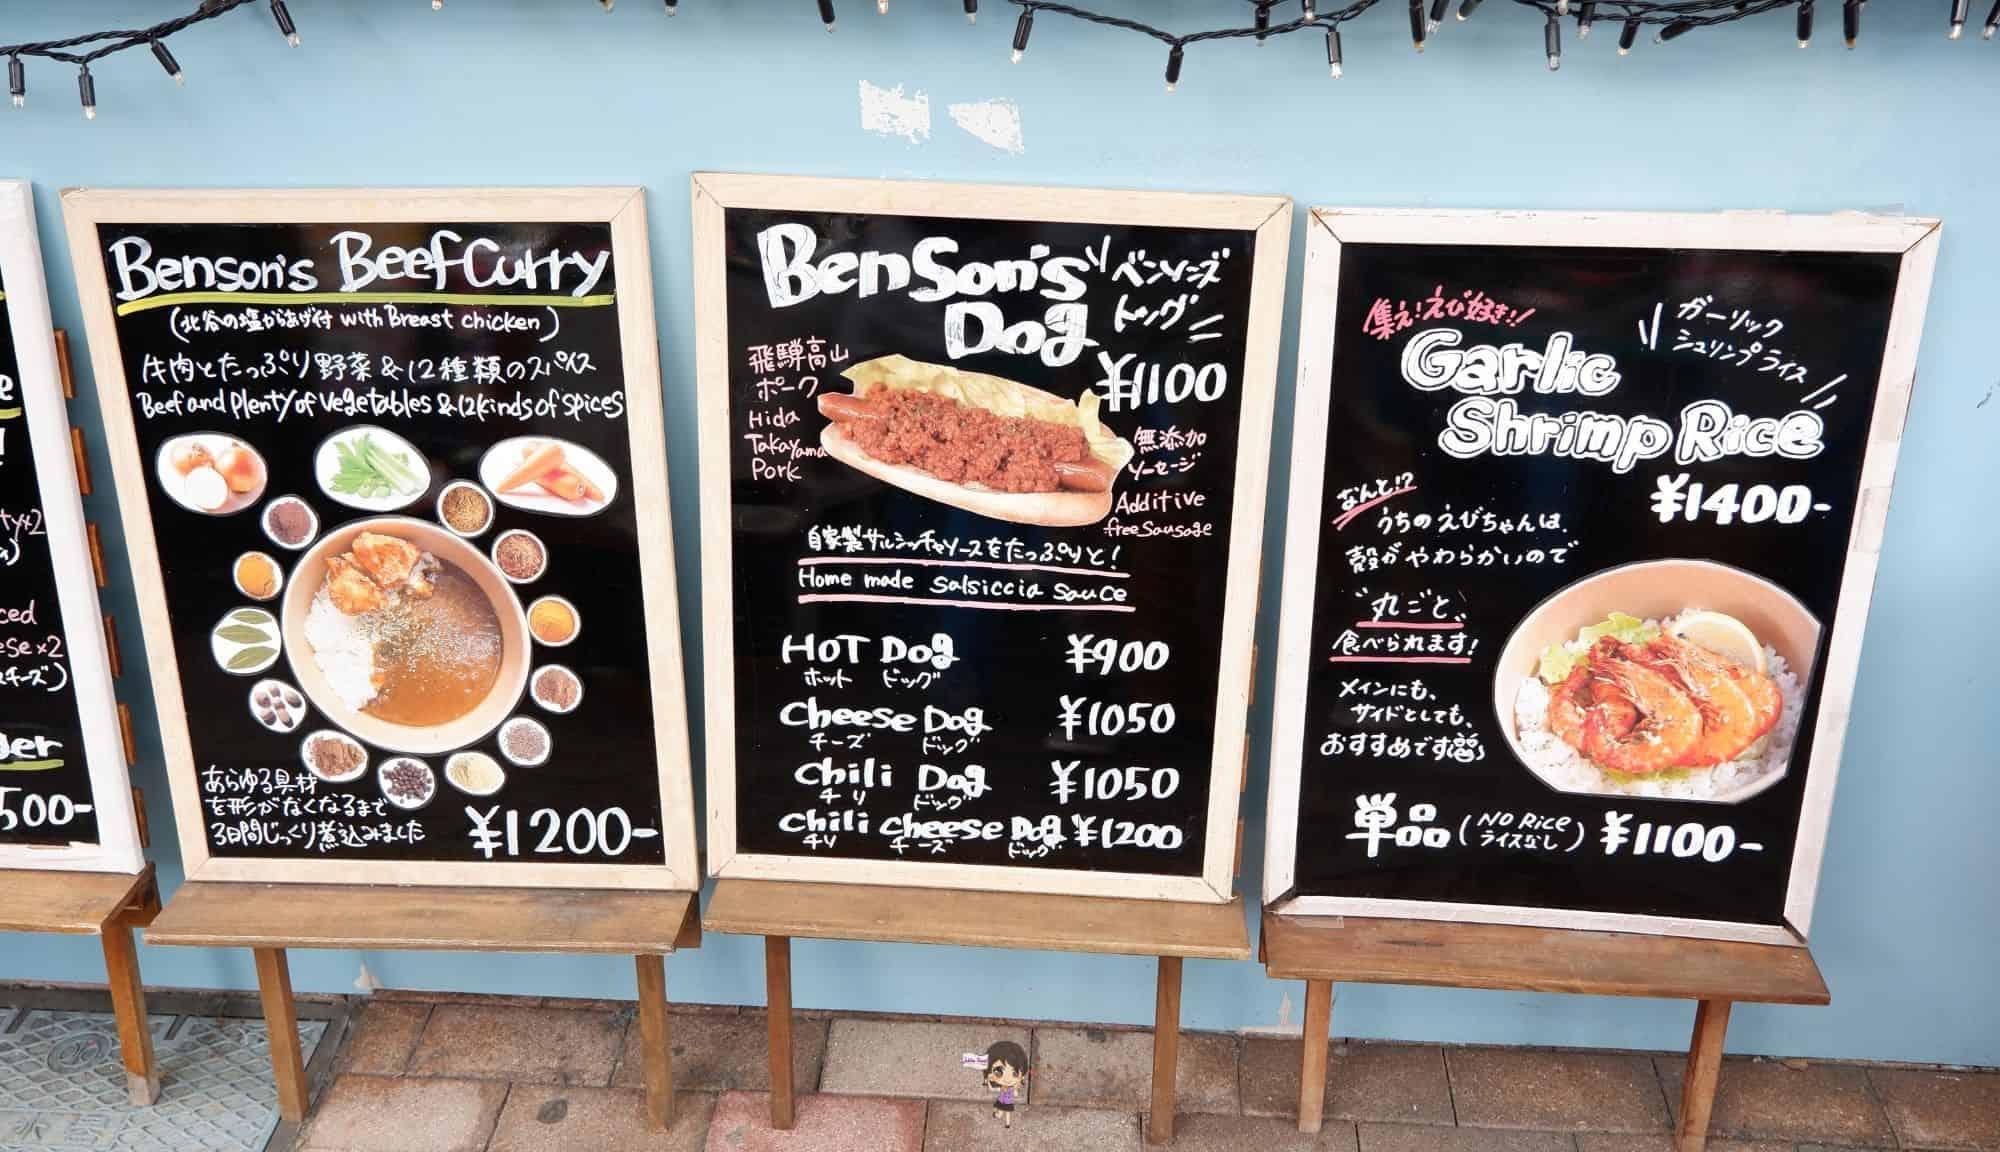 ty×2
ced
ese×2
チーズ)
ger
500-
Benson's Beef Curry
(北谷の塩からあげ付 with Breast chicken)
牛肉とたっぷり野菜&12種類のスパイス
Beef and Plenty of vegetables & 12kinds of spices
あらゆる具材
を形がなくなるまで
3日間じっくり煮込みました
¥1200-
BenSon's Dog
ベンソンズ
ドッグ
¥1100
飛騨高山
ポーク
Hida
Takayama
Pork
無添加
ソーセージ
Additive
free sausage
自家製サルシッチャソースをたっぷりと!
Home made salsiccia sauce
HOT Dog ¥900
ホット ドッグ
Cheese Dog ¥1050
チーズ ドッグ
Chili Dog ¥1050
チリ ドッグ
Chili cheese Dog ¥1200
チリ チーズ ドッグ
集え!えび好き!!
ガーリック
シュリンプライス
Garlic
Shrimp Rice
¥1400-
なんと!?
うちのえびちゃんは、
殻がやわらかいので
"丸ごと"
食べられます!
メインにも、
サイドとしても、
おすすめです
単品 (NO Rice ライスなし) ¥1100-